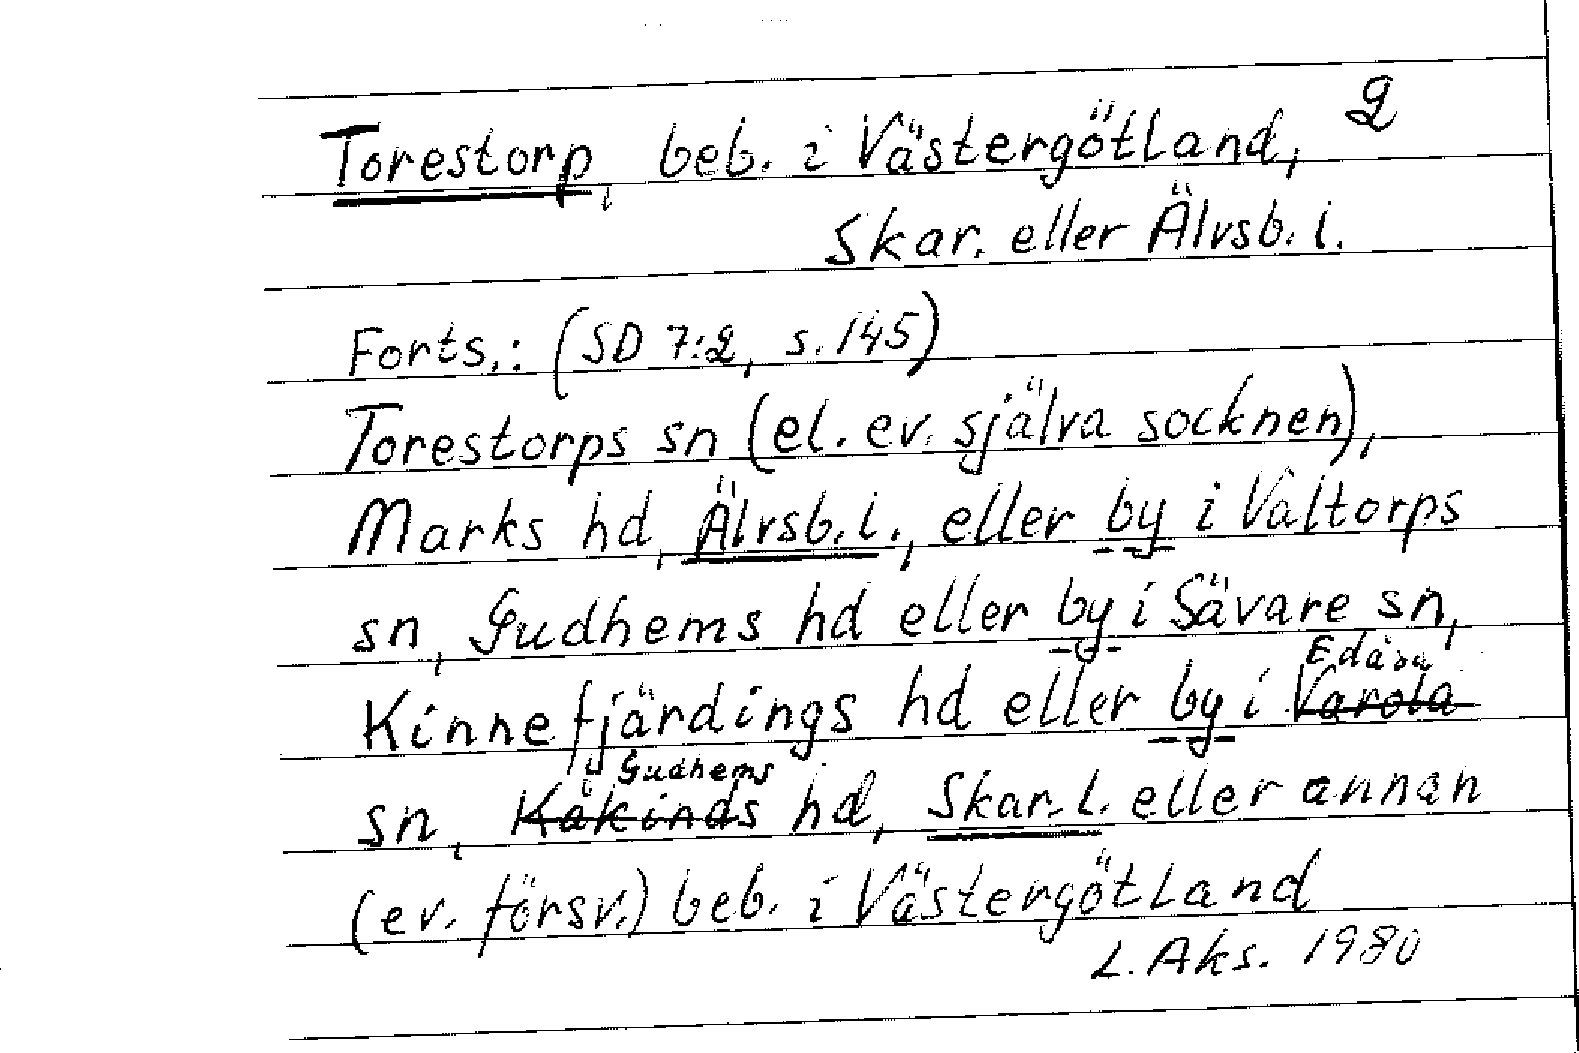 Torestorp, beb. i Västergötland, 2
Skar. eller Älvsb. l.
Forts.: (SD 7:2, s. 145)
Torestorps sn (el. ev. själva socknen),
Marks hd, Älvsb. l., eller by i Valtorps
sn, Gudhems hd eller by i Sävare sn,
Kinnefjärdings hd eller by i Varola Edåsa
sn, Kåkinds Gudhems hd, Skar. l. eller annan
(ev. försv.) beb. i Västergötland
L. Aks. 1980